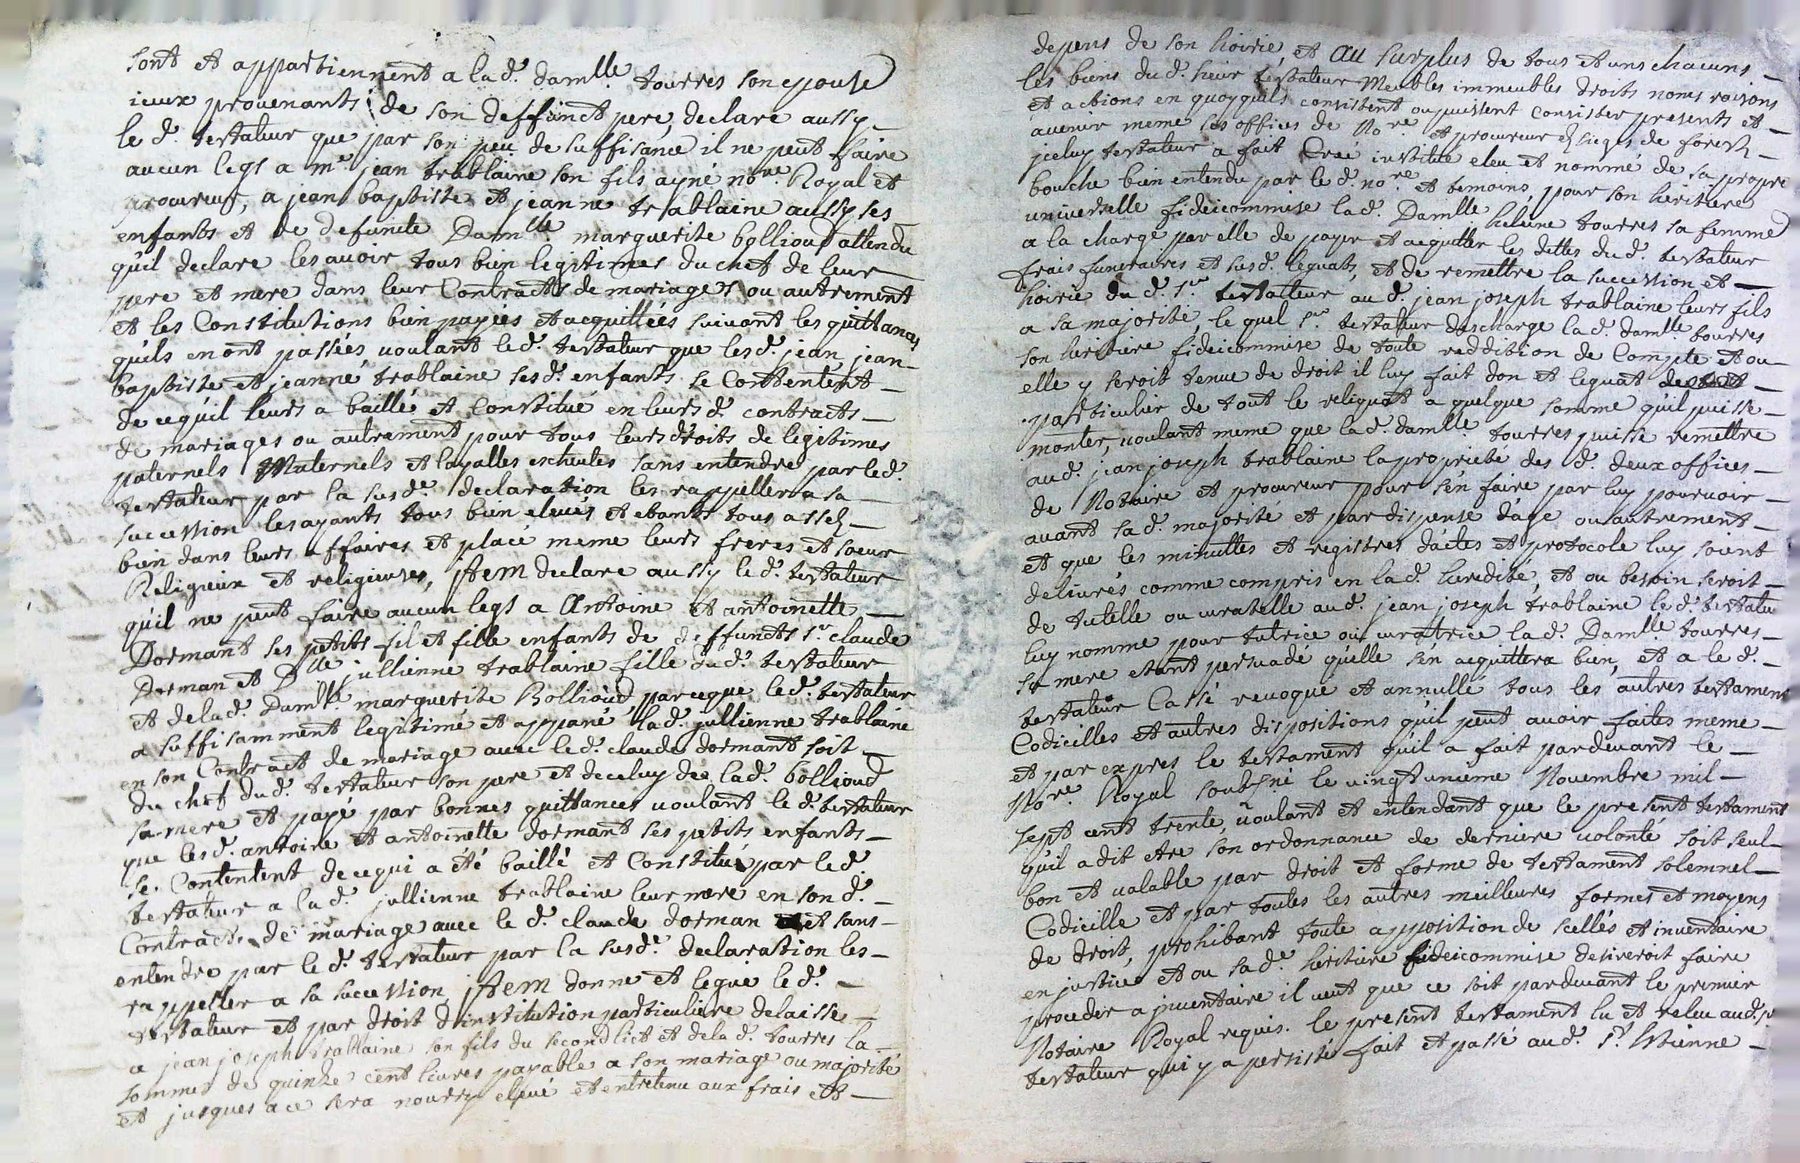 sont et appartiennent a la d.e damlle tourres son epouse
iceux provenants de son deffunct pere, declare aussy
le d. testateur que par son peu de suffisance il ne peut faire
aucun legs a mr jean trablaine son fils ayné nore Royal et
procureur, a jean baptiste et jeanne trablaine aussy ses
enfants et de defunte Damlle marguerite bolliou attendu
qu'il declare les avoir tous bien legitimés du chef de leur
pere et mere dans leur Contracts de mariages ou autrement
et les Constitutions bien payées et acquittées suivant les quittances
qu'ils en ont passées, voulant le d. testateur que les d. jean, jean
baptiste et jeanne trablaine ses d. enfants se Contentent
de ce qu'il leurs a baillé et Constitué en leurs d. contracts
de mariages ou autrement pour tous leurs droits de legitimes
paternels Maternels et layalles escheutes sans entendre par le d.
testateur par la susd.e declaration les rappeller a sa
succession les ayants tous bien elevés et etants tous assés
bien dans leurs affaires et placé meme leurs freres et soeur
Religieux et religieuses, jtem declare aussy le d. testateur
qu'il ne peut faire aucun legs a Antoine et antoinette
Dormant ses petits fil et fille enfants de deffuncts sr claude
Dorman et Dlle jullienne trablaine fille du d. testateur
et de la d. Damlle marguerite Bolliond parceque le d. testateur
a suffisamment legitimé et appané la d. jullienne trablaine
en son Contract de mariage avec le d. claude dormant soit
du chef du d. testateur son pere et de celuy de la d. bolliond
sa mere et payé par bonnes quittances voulant le d. testateur
que les d. antoine et antoinette dormant ses petits enfants
se Contentent de ce qui a été baillé et Constitué par le d.
testateur a la d. jullienne trablaine leur mere en son d.
Contract de mariage avec le d. claude dorman et sans
entendre par le d. testateur par la susd.e declaration les
rappeller a sa succession jtem donne et legue le d.
testateur et par droit d'institution particuliere delaisse
a jean joseph trablaine son fils du second lict et de la d. tourres la
somme de quinze cent livres payable a son mariage ou majorité
et jusques a ce sera nourry elevé et entretenu aux frais et
depens de son hoirie, et au surplus de tous et uns chacuns
les biens du d. sieur testateur Meubles immeubles droits noms raisons
et actions en quoy qu'ils consistent ou puissent consister presents et
avenir meme ses offices de Nore et procureur es sieges de forests
jceluy testateur a fait Creé institué eleu et nommé de sa propre
bouche bien entendu par le d. nore et temoins, pour son heritiere
universelle fideicommise la d. Damlle heleine tourres sa femme
a la charge par elle de payer et acquitter les dettes du d. testateur
frais funeraires et susd. leguats, et de remettre la succession et
hoirie du d. sr testateur au d. jean joseph trablaine leurs fils
a sa majorité, le quel sr testateur descharge la d. damlle tourres
son heritiere fideicommise de toute reddition de Compte et ou
elle y seroit tenue de droit il luy fait don et leguat
particulier de tout le reliquatt a quelque somme qu'il puisse
monter, voulant meme que la d. damlle tourres puisse remettre
au d. jean joseph trablaine la proprieté des d. deux offices
de Notaire et procureur pour s'en faire par luy pourvoir
avant sa d. majorité et par dispense d'age ou autrement
et que les minuttes et registres d'actes et protocole luy soient
delivrés comme compris en la d. heredité, et ou besoin seroit
de tutelle ou curatelle au d. jean joseph trablaine le d. testateu
luy nomme pour tutrice ou curatrice la d. Damlle tourres
sa mere etant persuadé qu'elle s'en acquittera bien, et a le d.
testateur Cassé revoqué et annullé tous les autres testament
Codicilles et autres dispositions qu'il peut avoir faites meme
et par expres le testament qu'il a fait pardevant le
Nore Royal soubsné le vingt unième Novembre mil
sept cent trente, voulant et entendant que le present testament
qu'il a dit etre son ordonnance de derniere volonté soit seul
bon et valable par droit et forme de testament solemnel
Codicille et par toutes les autres meilleures formes et moyens
de droit, prohibant toute apposition de scellés et inventaire
en justice et ou sa d.e heritiere fideicommise desireroit faire
proceder a jnventaire il veut que ce soit pardevant le premier
Notaire Royal requis. le present testament lu et releu au d. sr
testateur qui y a persisté fait et passé au d. st Etienne